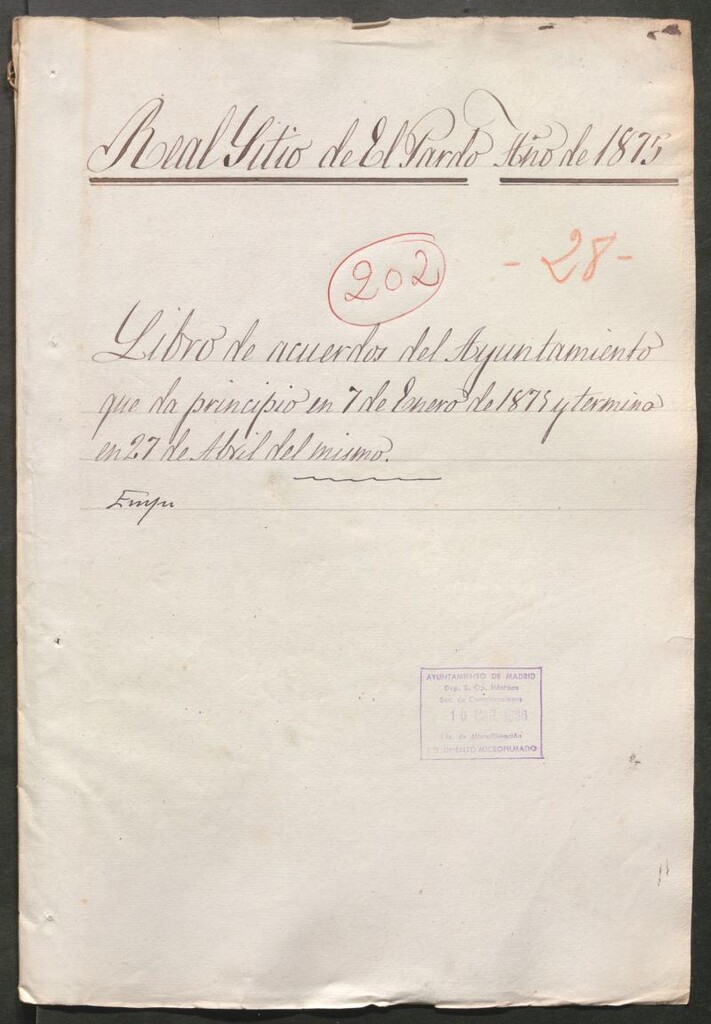 Real Sitio de El Pardo Año de 1875
202
- 28 -
Libro de acuerdos del Ayuntamiento
que da principio en 7 de Enero de 1875 y termina
en 27 de Abril del mismo.
AYUNTAMIENTO DE MADRID
Dep. S.
10
DOCUMENTO MICROFILMADO